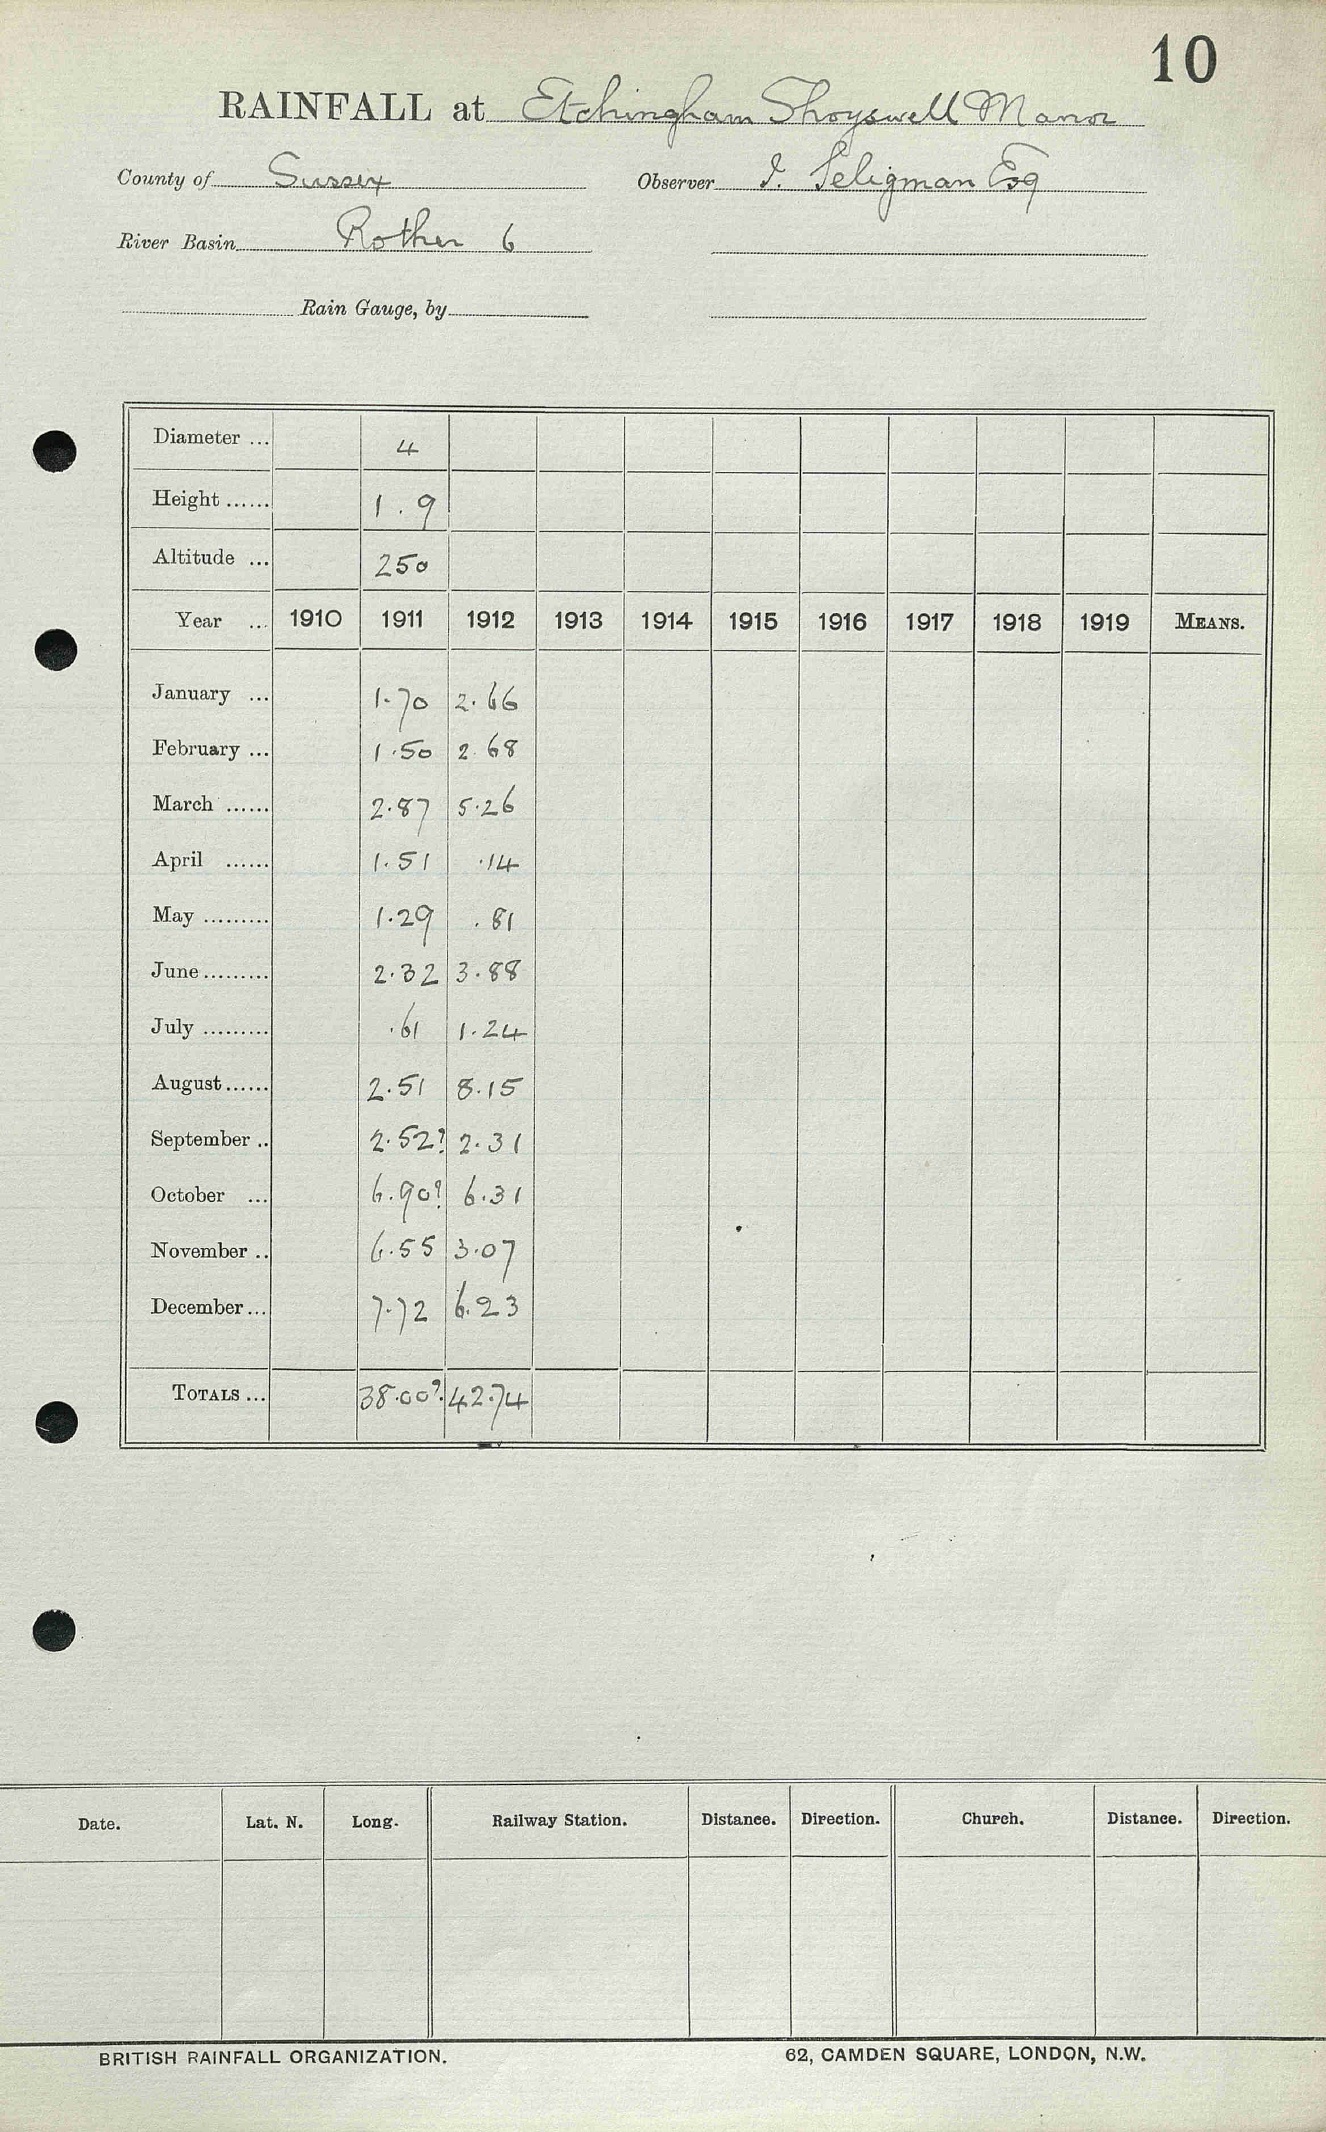 10
RAINFALL at Etchingham Shoyswell Manor
County of Sussex Observer I. Seligman Esq
River Basin Rother 6
Rain Gauge, by
Diameter ... 4
Height ...... 1.9
Altitude ... 250
Year ... 1910 1911 1912 1913 1914 1915 1916 1917 1918 1919 MEANS.
January ... 1.70 2.66
February ... 1.50 2.68
March ...... 2.87 5.26
April ...... 1.51 .14
May ......... 1.29 .81
June ......... 2.32 3.88
July ......... .61 1.24
August ...... 2.51 8.15
September .. 2.52? 2.31
October ... 6.90? 6.31
November .. 6.55 3.07
December ... 7.72 6.23
TOTALS ... 38.00? 42.74
Date. Lat. N. Long. Railway Station. Distance. Direction. Church. Distance. Direction.
BRITISH RAINFALL ORGANIZATION. 62, CAMDEN SQUARE, LONDON, N.W.